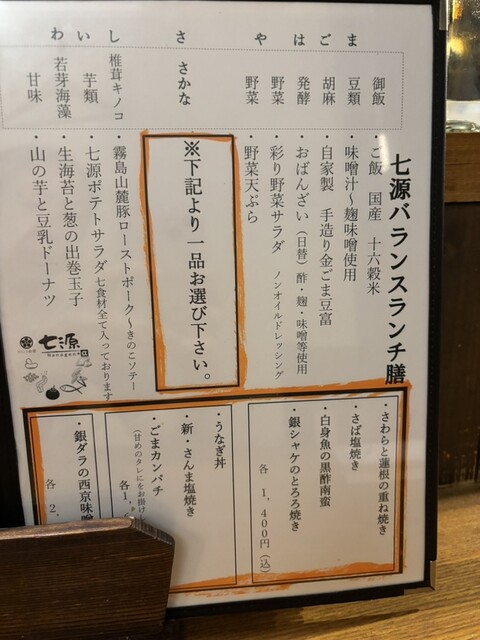 七源バランスランチ膳
まごはやさしいわ
御飯
・ご飯 国産 十六穀米
豆類
・味噌汁~麹味噌使用
胡麻
・自家製 手造り金ごま豆富
発酵
・おばんざい(日替)酢・麹・味噌等使用
野菜
・彩り野菜サラダ ノンオイルドレッシング
野菜
・野菜天ぷら
さかな
※下記より一品お選び下さい。
椎茸キノコ
・霧島山麓豚ローストポーク~きのこソテー
芋類
・七源ポテトサラダ 七食材全て入っております
若芽海藻
・生海苔と葱の出巻玉子
甘味
・山の芋と豆乳ドーナツ
七源
Nanagen
・さわらと蓮根の重ね焼き
・さば塩焼き
・白身魚の黒酢南蛮
・銀シャケのとろろ焼き
各 1,400円(込)
・うなぎ丼
・新・さんま塩焼き
・ごまカンパチ
(甘めのタレにをお掛け
各1,
・銀ダラの西京味噌
各 2,